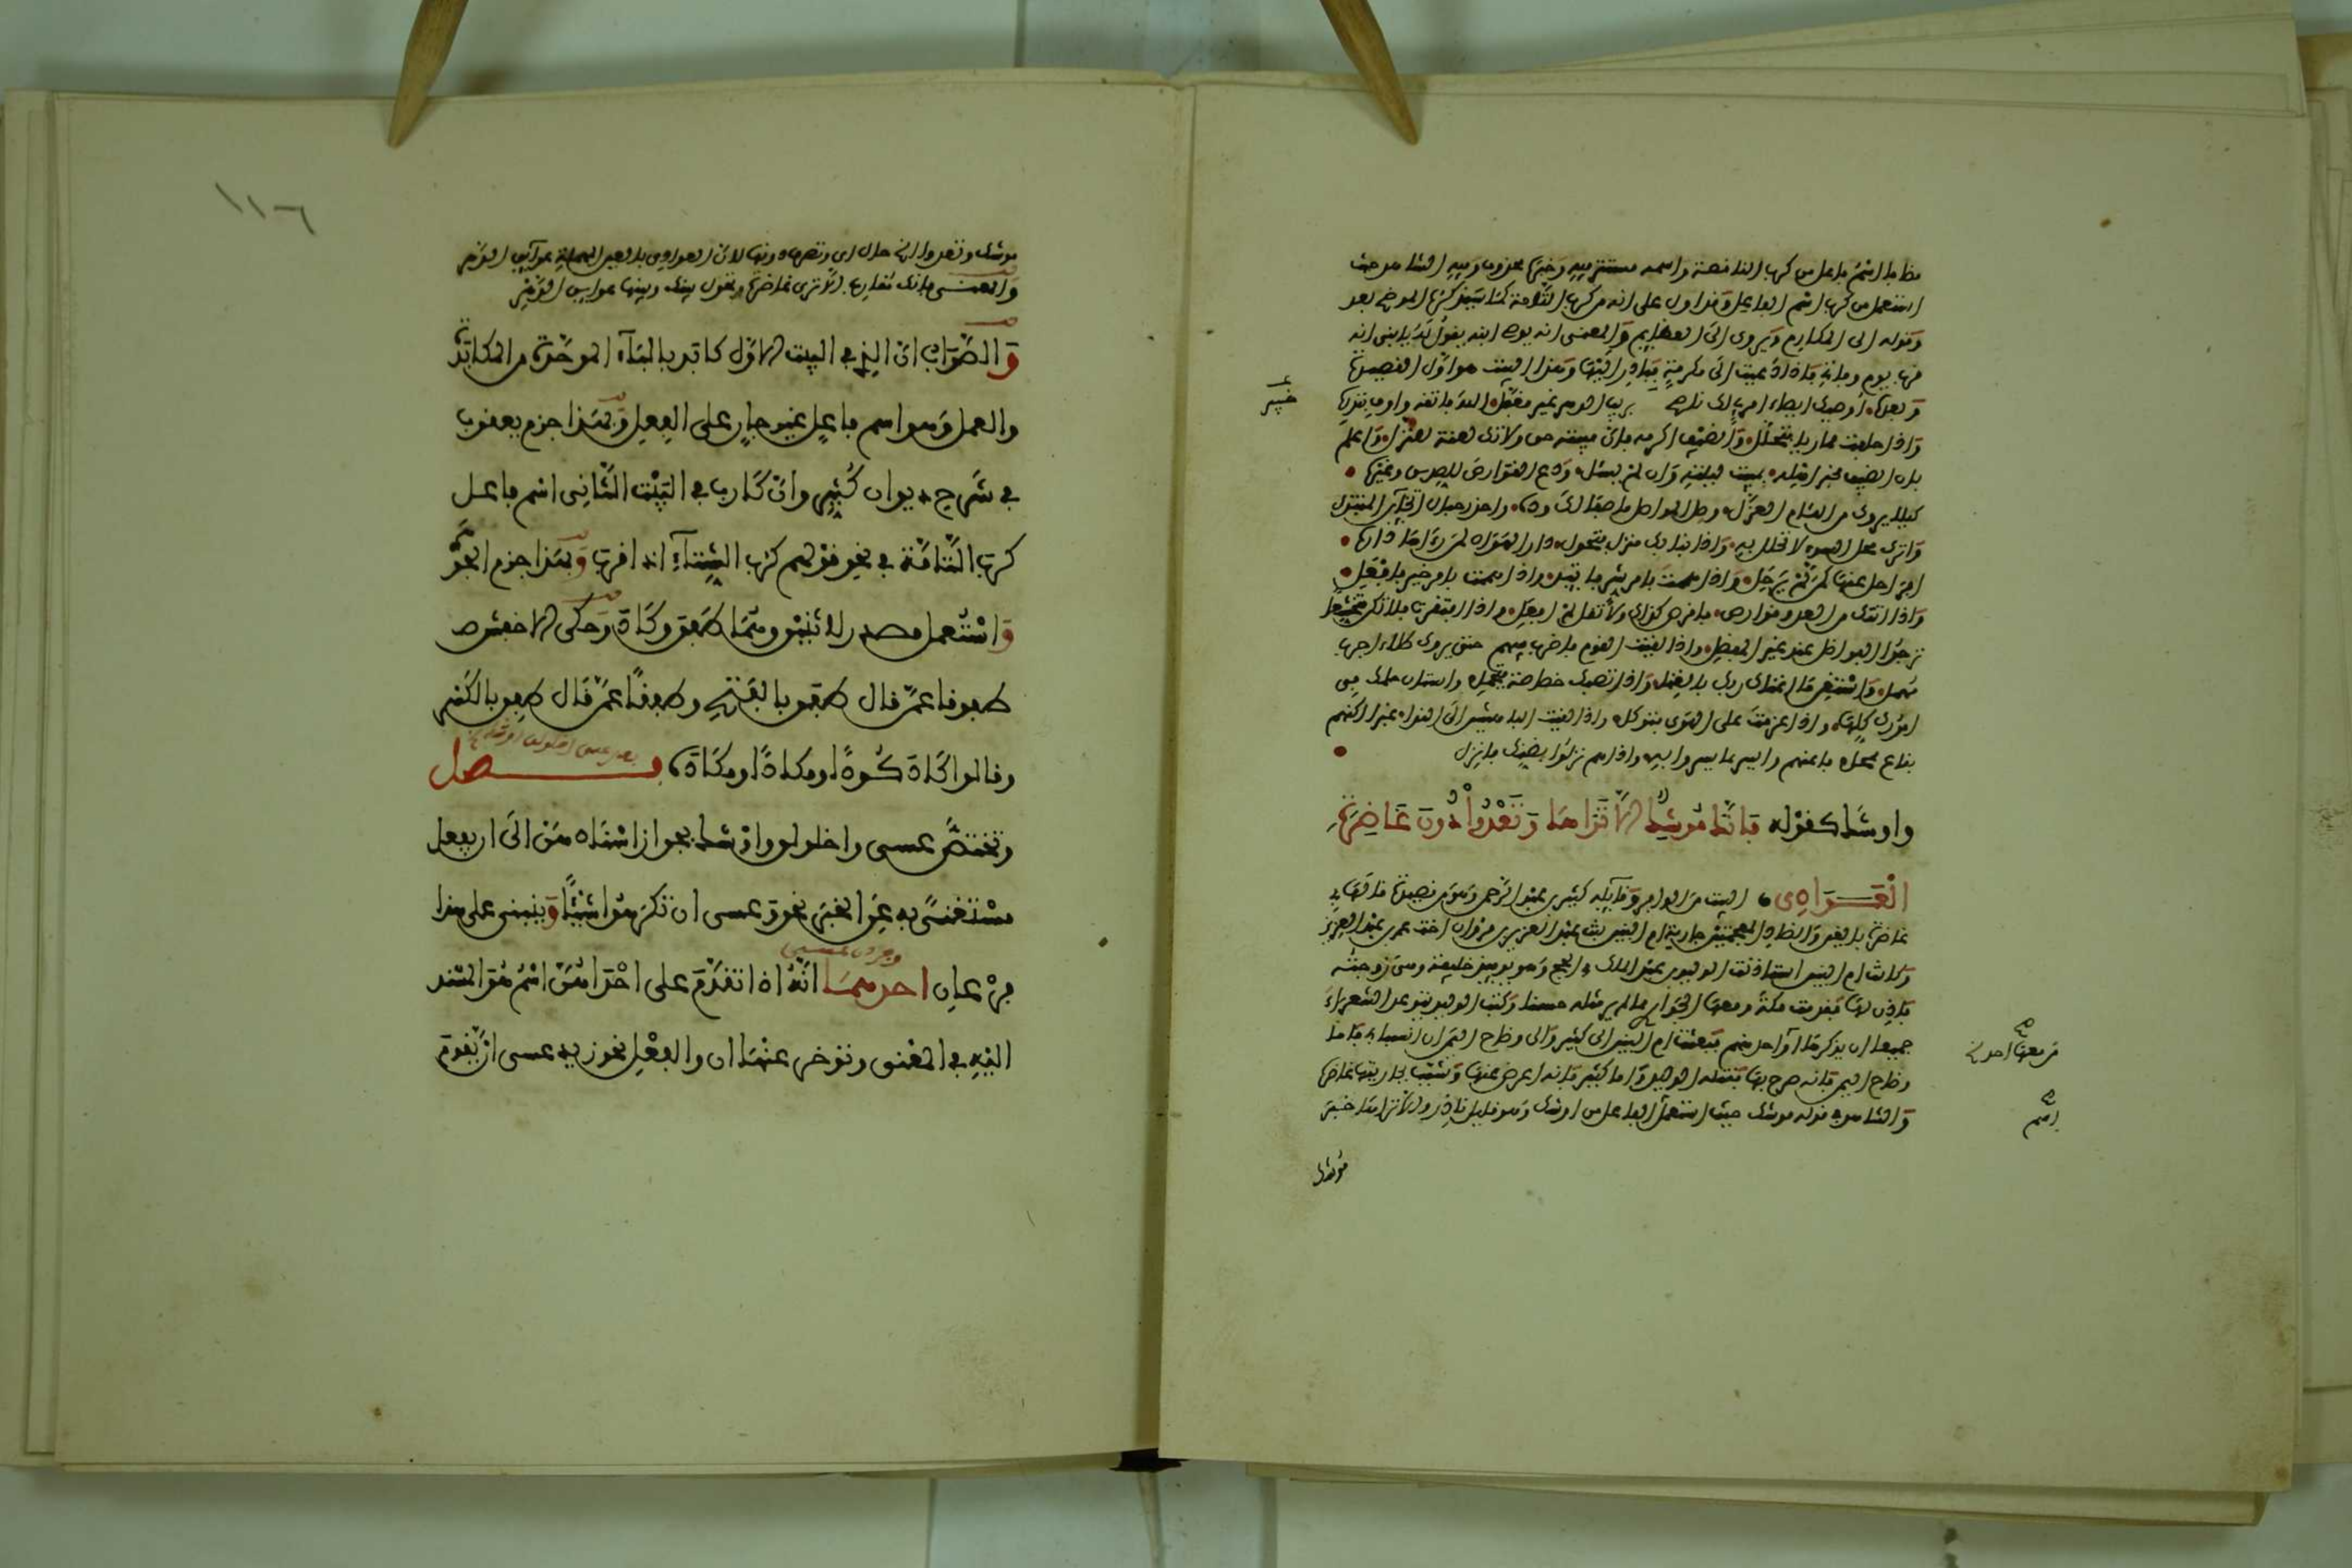 هنا بانه اسم فاعل من كرب الناقصة واسمه مستتر فيه وخبرها محذوف وفيه الشاهد حيث
استعمل من كرب اسم الفاعل وهذا اول على انه من كرب التامة كما سيذكره الموضح بعد
وقوله الى المكارم ويروى الى العظايم والمعنى انه يوصى ابنه يقول له يا بنى انه
قرب يوم وفاته فاذا دعيت الى مكرمة فبادر اليها وهذا البيت هو اول القصيدة
وبعده اوصيك ايصاء امرئ لك ناصح بريب الدهر غير مغفل الله فاتقه واوف بنذره
واذا حلفت مماريا فتحلل والضيف اكرمه فان مبيته حق ولا تك لعنة للنزل واعلم
بان الضيف مخبر اهله بمبيت ليلته وان لم يسئل ودع القوارص للصديق وغيره
كيلا يروك من اللئام العزل وصل المواصل ما صفا لك وده واحذر حبال الخآين المتبدل
واترك محل السوء لا تحلل به واذا نبا بك منزل فتحول دار الهوان لمن رءاها داره
افراحل عنها كمن لم يرحل واذا هممت بامر شر فاتئد واذا هممت بامر خير فافعل
واذا اتتك من العدو قوارص فاقرص كذاك ولا تقل لم افعل واذا افتقرت فلا تكن متخشعا
ترجوا الفواضل عند غير المفضل واذا لقيت القوم فاضرب فيهم حتى يروك طلاء اجرب
مهمل واستغن ما اغناك ربك بالغنى واذا تصبك خصاصة فتجمل واستان حلمك فى
امورك كلها واذا عزمت على الهوى فتوكل واذا لقيت الباهشين الى الندا غبرا اكفهم
بقاع ممحل فاعنهم وايسر بما يسروا به واذا هم نزلوا بضنك فانزل
غير
واوشك كقوله فانك موشك الا تراها وتعدوا دون غاضرة
العوادى البيت من الوافر وقآيله كثير بن عبد الرحمن وهو من قصيدة قالها فى
غاضرة بالغين والضاد المعجمتين جارية ام البنين بنت عبد العزيز بن مروان اخت عمر بن عبد العزيز
وكانت ام البنين استاذنت الوليد بن عبد الملك فى الحج وهو يوميذ خليفة وهى زوجته
فاذن لها فقدمت مكة ومعها من الجوارى ما لم ير مثله حسنا وكتب الوليد يتوعد الشعراء
جميعا ان يذكرها احد منهم فبعثت ام البنين الى كثير والى وضاح اليمن ان انسبا بى فاما
وضاح اليمن فانه صرح بها فقتله الوليد واما كثير فانه اعرض عنها وشبب بجاريتها غاضرة
والشاهد فى قوله موشك حيث استعمل الفاعل من اوشك وهو قليل نادر والا تراها خبر
اسم
موشك
١١٦
موشك وتعدوا اى حال اى وتصرف دونها لان العوادى بالعين المهملة عوآيق الدهر
والمعنى فانك تقارب الا ترى غاضرة وتحول بينك وبينها عوايق الدهر
والصواب ان الذى فى البيت الاول كابد بالبآء الموحدة من المكابدة
والعمل وهو اسم فاعل غير جار على الفعل وبهذا جزم يعقوب
فى شرح ديوان كثير وان كارب فى البيت الثانى اسم فاعل
كرب التامة فى نحو قولهم كرب الشتآء اذا قرب وبهذا جزم الجوهرى
واستعمل مصدر لاثنين وهما طفق وكاد وحكى الاخفش
طفوقا عمن قال طفق بالفتح وطفقا عمن قال طفق بالكسر
وقالوا كاد كودا ومكادا ومكادة فصل
وتختص عسى واخلولق واوشك بجواز اسنادهن الى ان يفعل
مستغنى به عن الخبر نحو وعسى ان تكرهوا شيئا وينبنى على هذا
فرعان احدهما انه اذا تقدم على احداهن اسم هو المسند
اليه فى المعنى وتوخر عنها ان والفعل نحو زيد عسى ان يقوم